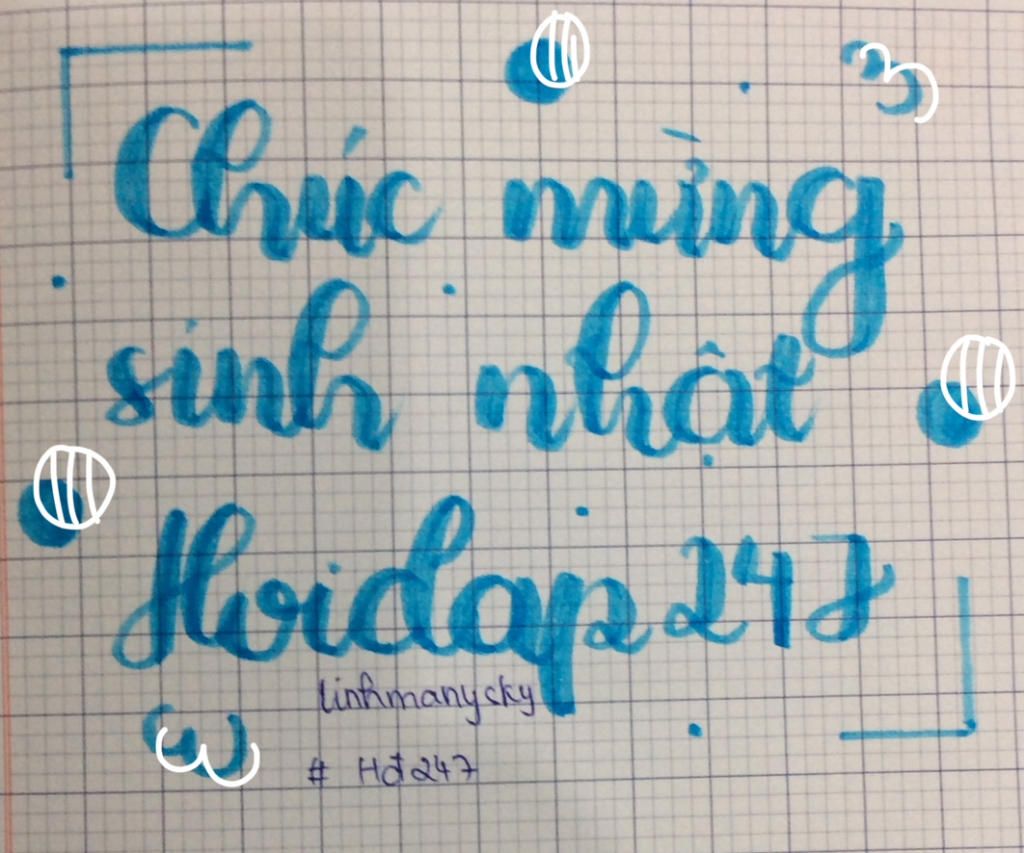 Chúc mừng
sinh nhật
Hoidap 247
linhmanysky
# Hđ247